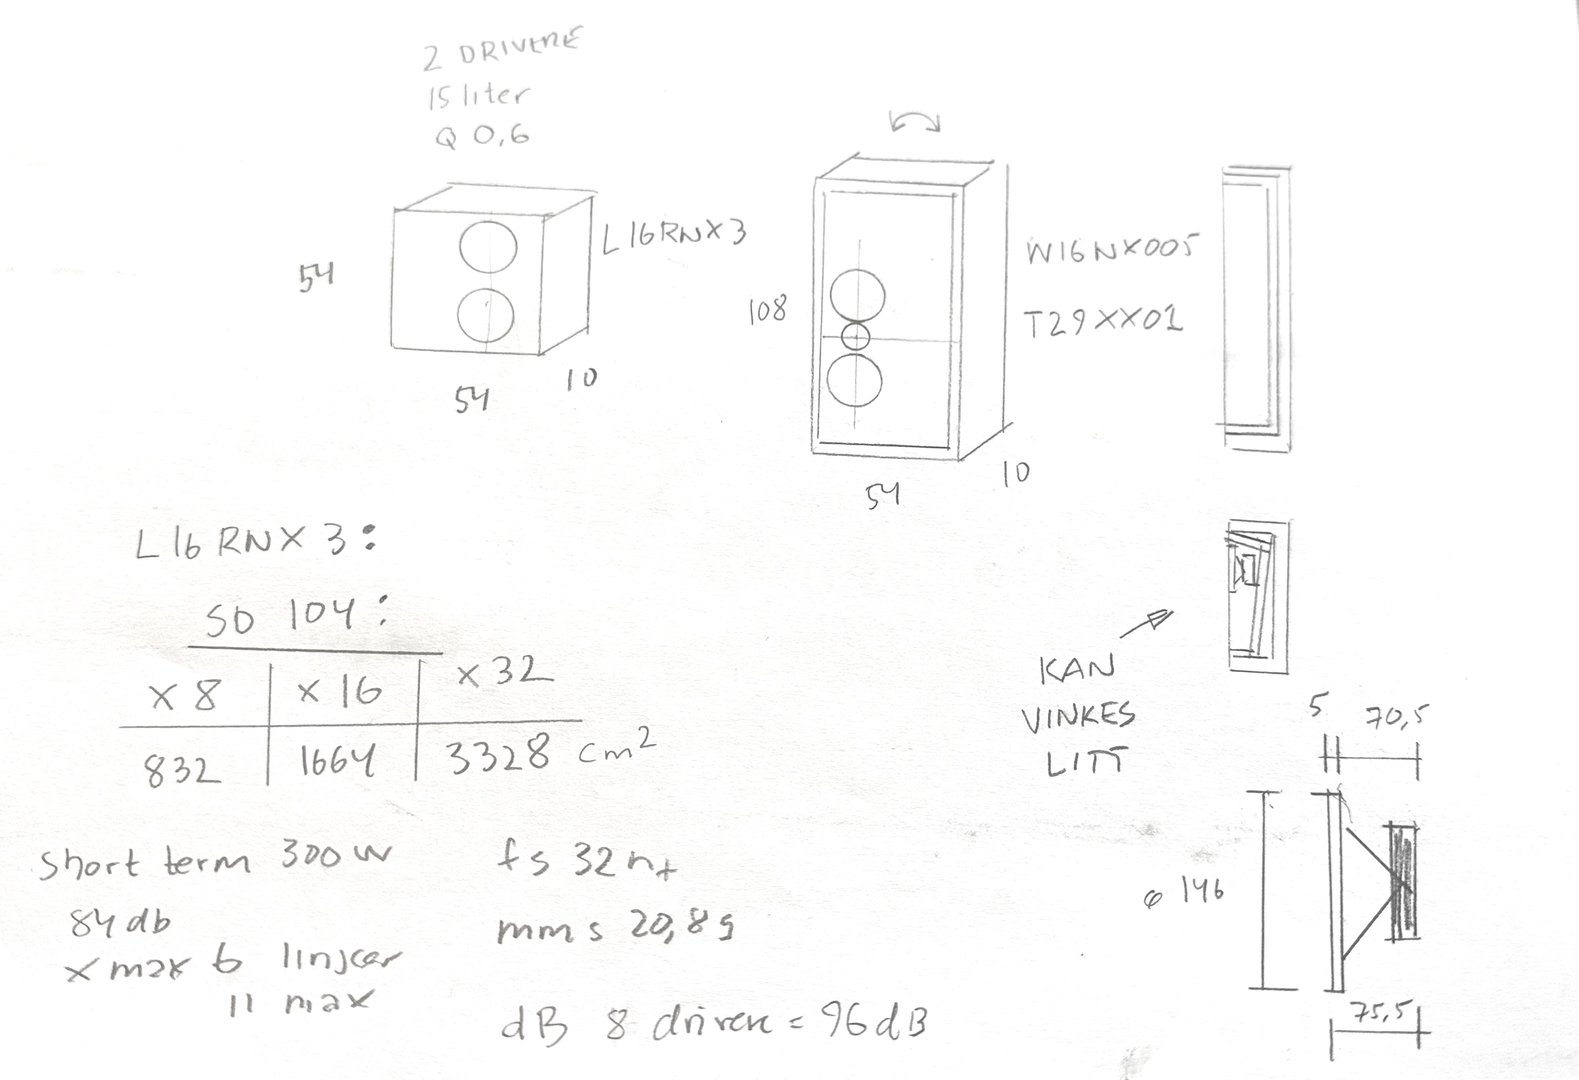 2 DRIVERE
15 liter
Q 0,6
L16RNX3
54
54
10
108
W16NX005
T29XX01
54
10
L16RNX3:
SD 104:
x 8 x 16 x 32
832 1664 3328 cm²
short term 300 W
84 db
x max 6 linjear
11 max
fs 32 Hz
mms 20,8g
dB 8 drivere = 96 dB
KAN
VINKES
LITT
5 70,5
ø 146
75,5